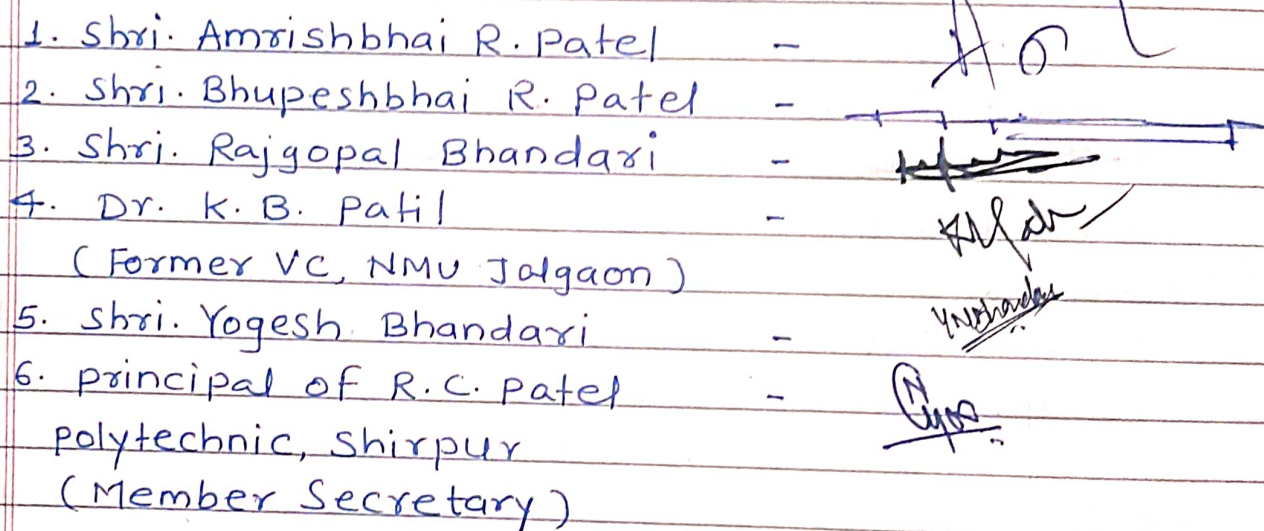 1. Shri. Amrishbhai R. Patel -
2. Shri. Bhupeshbhai R. Patel -
3. Shri. Rajgopal Bhandari -
4. Dr. K. B. Patil -
(Former VC, NMU Jalgaon)
5. Shri. Yogesh Bhandari -
6. Principal of R. C. Patel -
Polytechnic, Shirpur
(Member Secretary)